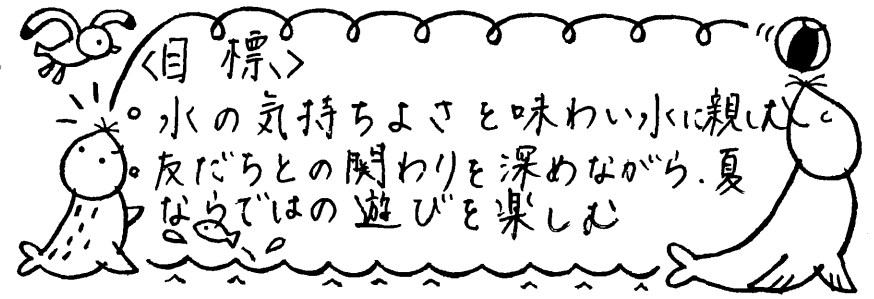 〈目標〉
○水の気持ちよさを味わい水に親しむ
○友だちとの関わりを深めながら、夏
ならではの遊びを楽しむ